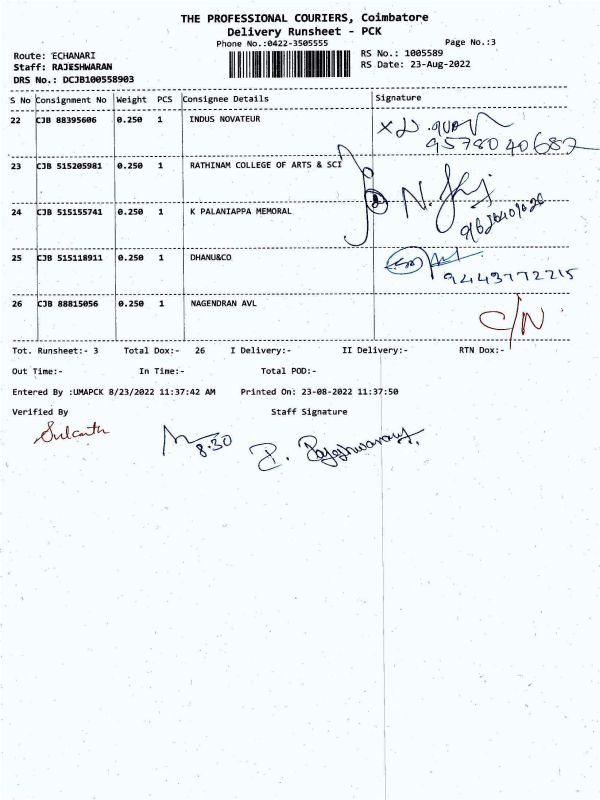 THE PROFESSIONAL COURIERS, Coimbatore
Delivery Runsheet - PCK
Phone No.:0422-3505555
Page No.:3
Route: ECHANARI
RS No.: 1005589
Staff: RAJESHWARAN
RS Date: 23-Aug-2022
DRS No.: DCJB100558903
S No Consignment No Weight PCS Consignee Details Signature
22 CJB 88395606 0.250 1 INDUS NOVATEUR
9578040687
23 CJB 515205981 0.250 1 RATHINAM COLLEGE OF ARTS & SCI
24 CJB 515155741 0.250 1 K PALANIAPPA MEMORAL
25 CJB 515118911 0.250 1 DHANU&CO
9443772215
26 CJB 88815056 0.250 1 NAGENDRAN AVL
C/N
Tot. Runsheet:- 3 Total Dox:- 26 I Delivery:- II Delivery:- RTN Dox:-
Out Time:- In Time:- Total POD:-
Entered By :UMAPCK 8/23/2022 11:37:42 AM Printed On: 23-08-2022 11:37:50
Verified By Staff Signature
8.30